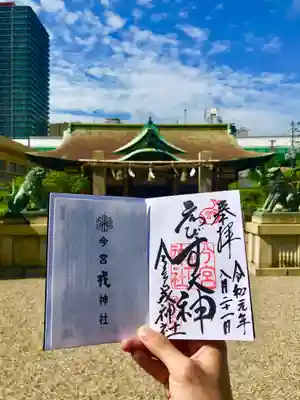 奉拝
ゑびす大神
今宮戎神社
今宮戎神社
令和元年
八月二十一日
今宮
戎
神社